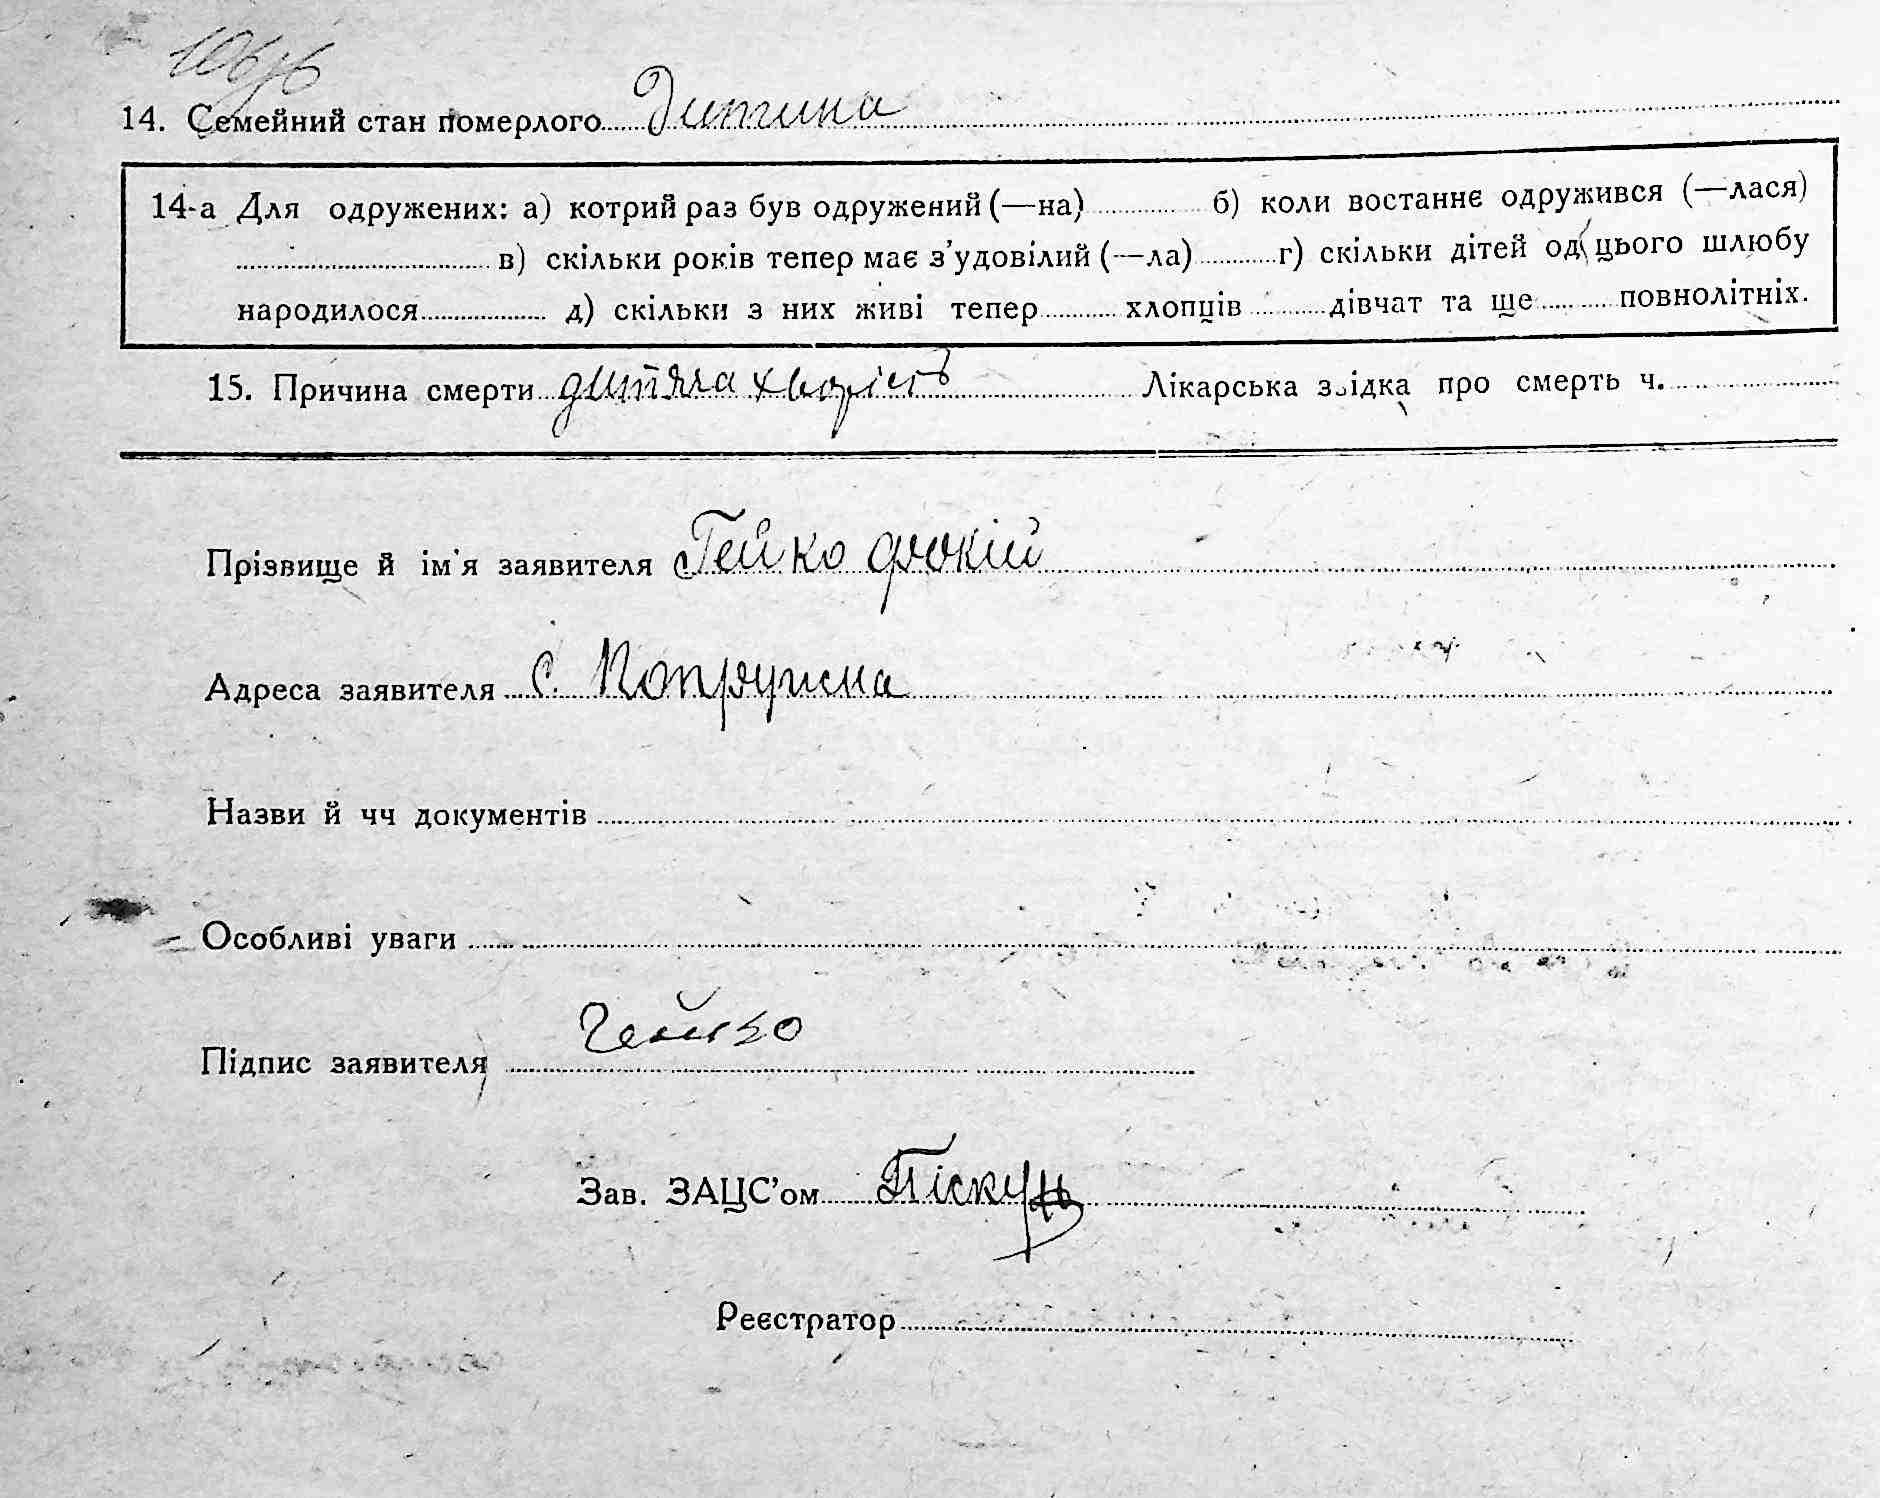 14. Семейний стан померлого Дитина
14-а Для одружених: а) котрий раз був одружений (—на) б) коли востаннє одружився (—лася)
в) скільки років тепер має з'удовілий (—ла) г) скільки дітей од цього шлюбу
народилося д) скільки з них живі тепер хлопців дівчат та ще повнолітніх.
15. Причина смерти дитяча хворість Лікарська звідка про смерть ч.
Прізвище й ім'я заявителя Гейко Фокій
Адреса заявителя с. Копружина
Назви й чч документів
Особливі уваги
Підпис заявителя Гейко
Зав. ЗАЦС'ом Піскунь
Реєстратор